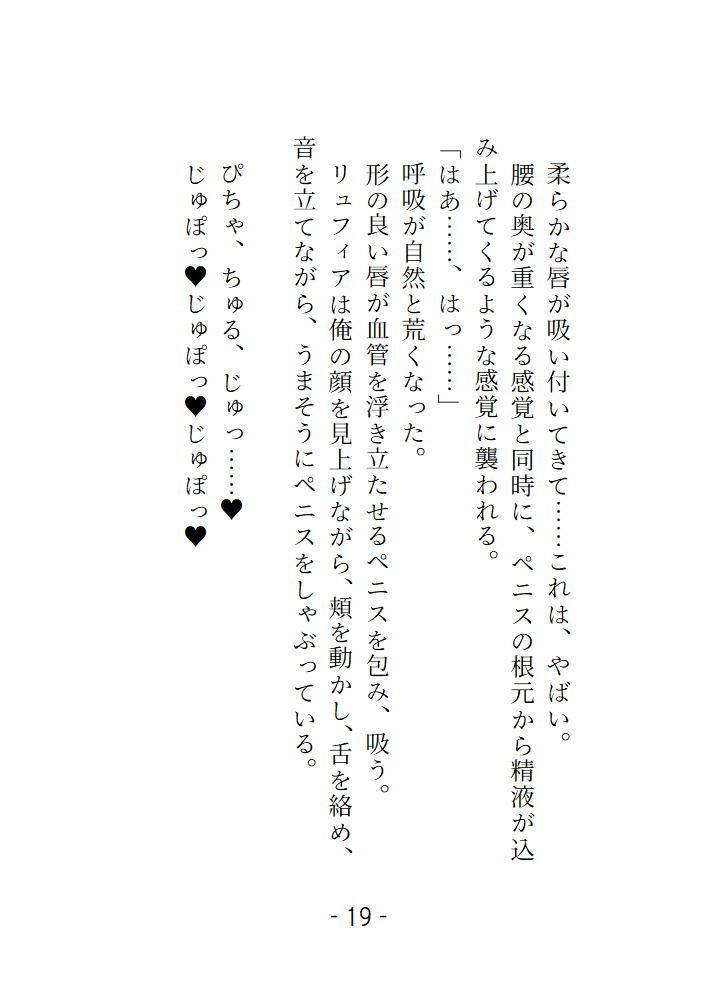 柔らかな唇が吸い付いてきて……これは、やばい。
腰の奥が重くなる感覚と同時に、ペニスの根元から精液が込
み上げてくるような感覚に襲われる。
「はあ……、はっ……」
呼吸が自然と荒くなった。
形の良い唇が血管を浮き立たせるペニスを包み、吸う。
リュフィアは俺の顔を見上げながら、頬を動かし、舌を絡め、
音を立てながら、うまそうにペニスをしゃぶっている。
ぴちゃ、ちゅる、じゅっ……♥
じゅぽっ♥じゅぽっ♥じゅぽっ♥
- 19 -